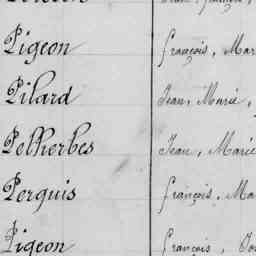 Pigeon françois, Mar
Pilard Jean, Marie,
Pelherbes Jean, Marie
Perquis françois, Ma
Pigeon françois,